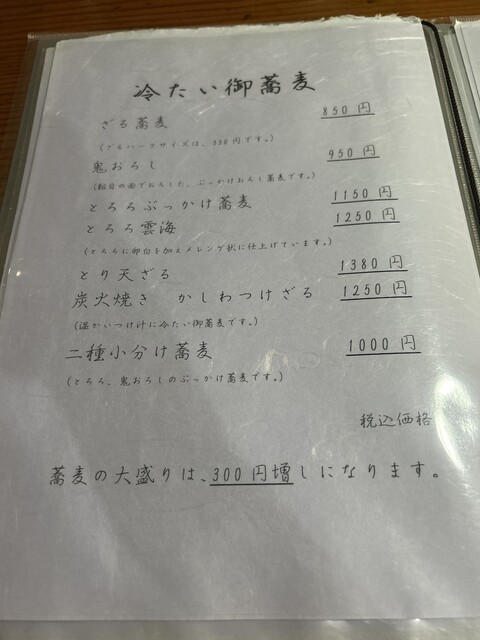 冷たい御蕎麦
ざる蕎麦 850円
鬼おろし 950円
(粗目の面でおろした、ぶっかけおろし蕎麦です。)
とろろぶっかけ蕎麦 1150円
とろろ雲海 1250円
(とろろに卵白を加えメレンゲ状に仕上げています。)
とり天ざる 1380円
炭火焼き かしわつけざる 1250円
(温かいつけ汁に冷たい御蕎麦です。)
二種小分け蕎麦 1000円
(とろろ、鬼おろしのぶっかけ蕎麦です。)
税込価格
蕎麦の大盛りは、300円増しになります。